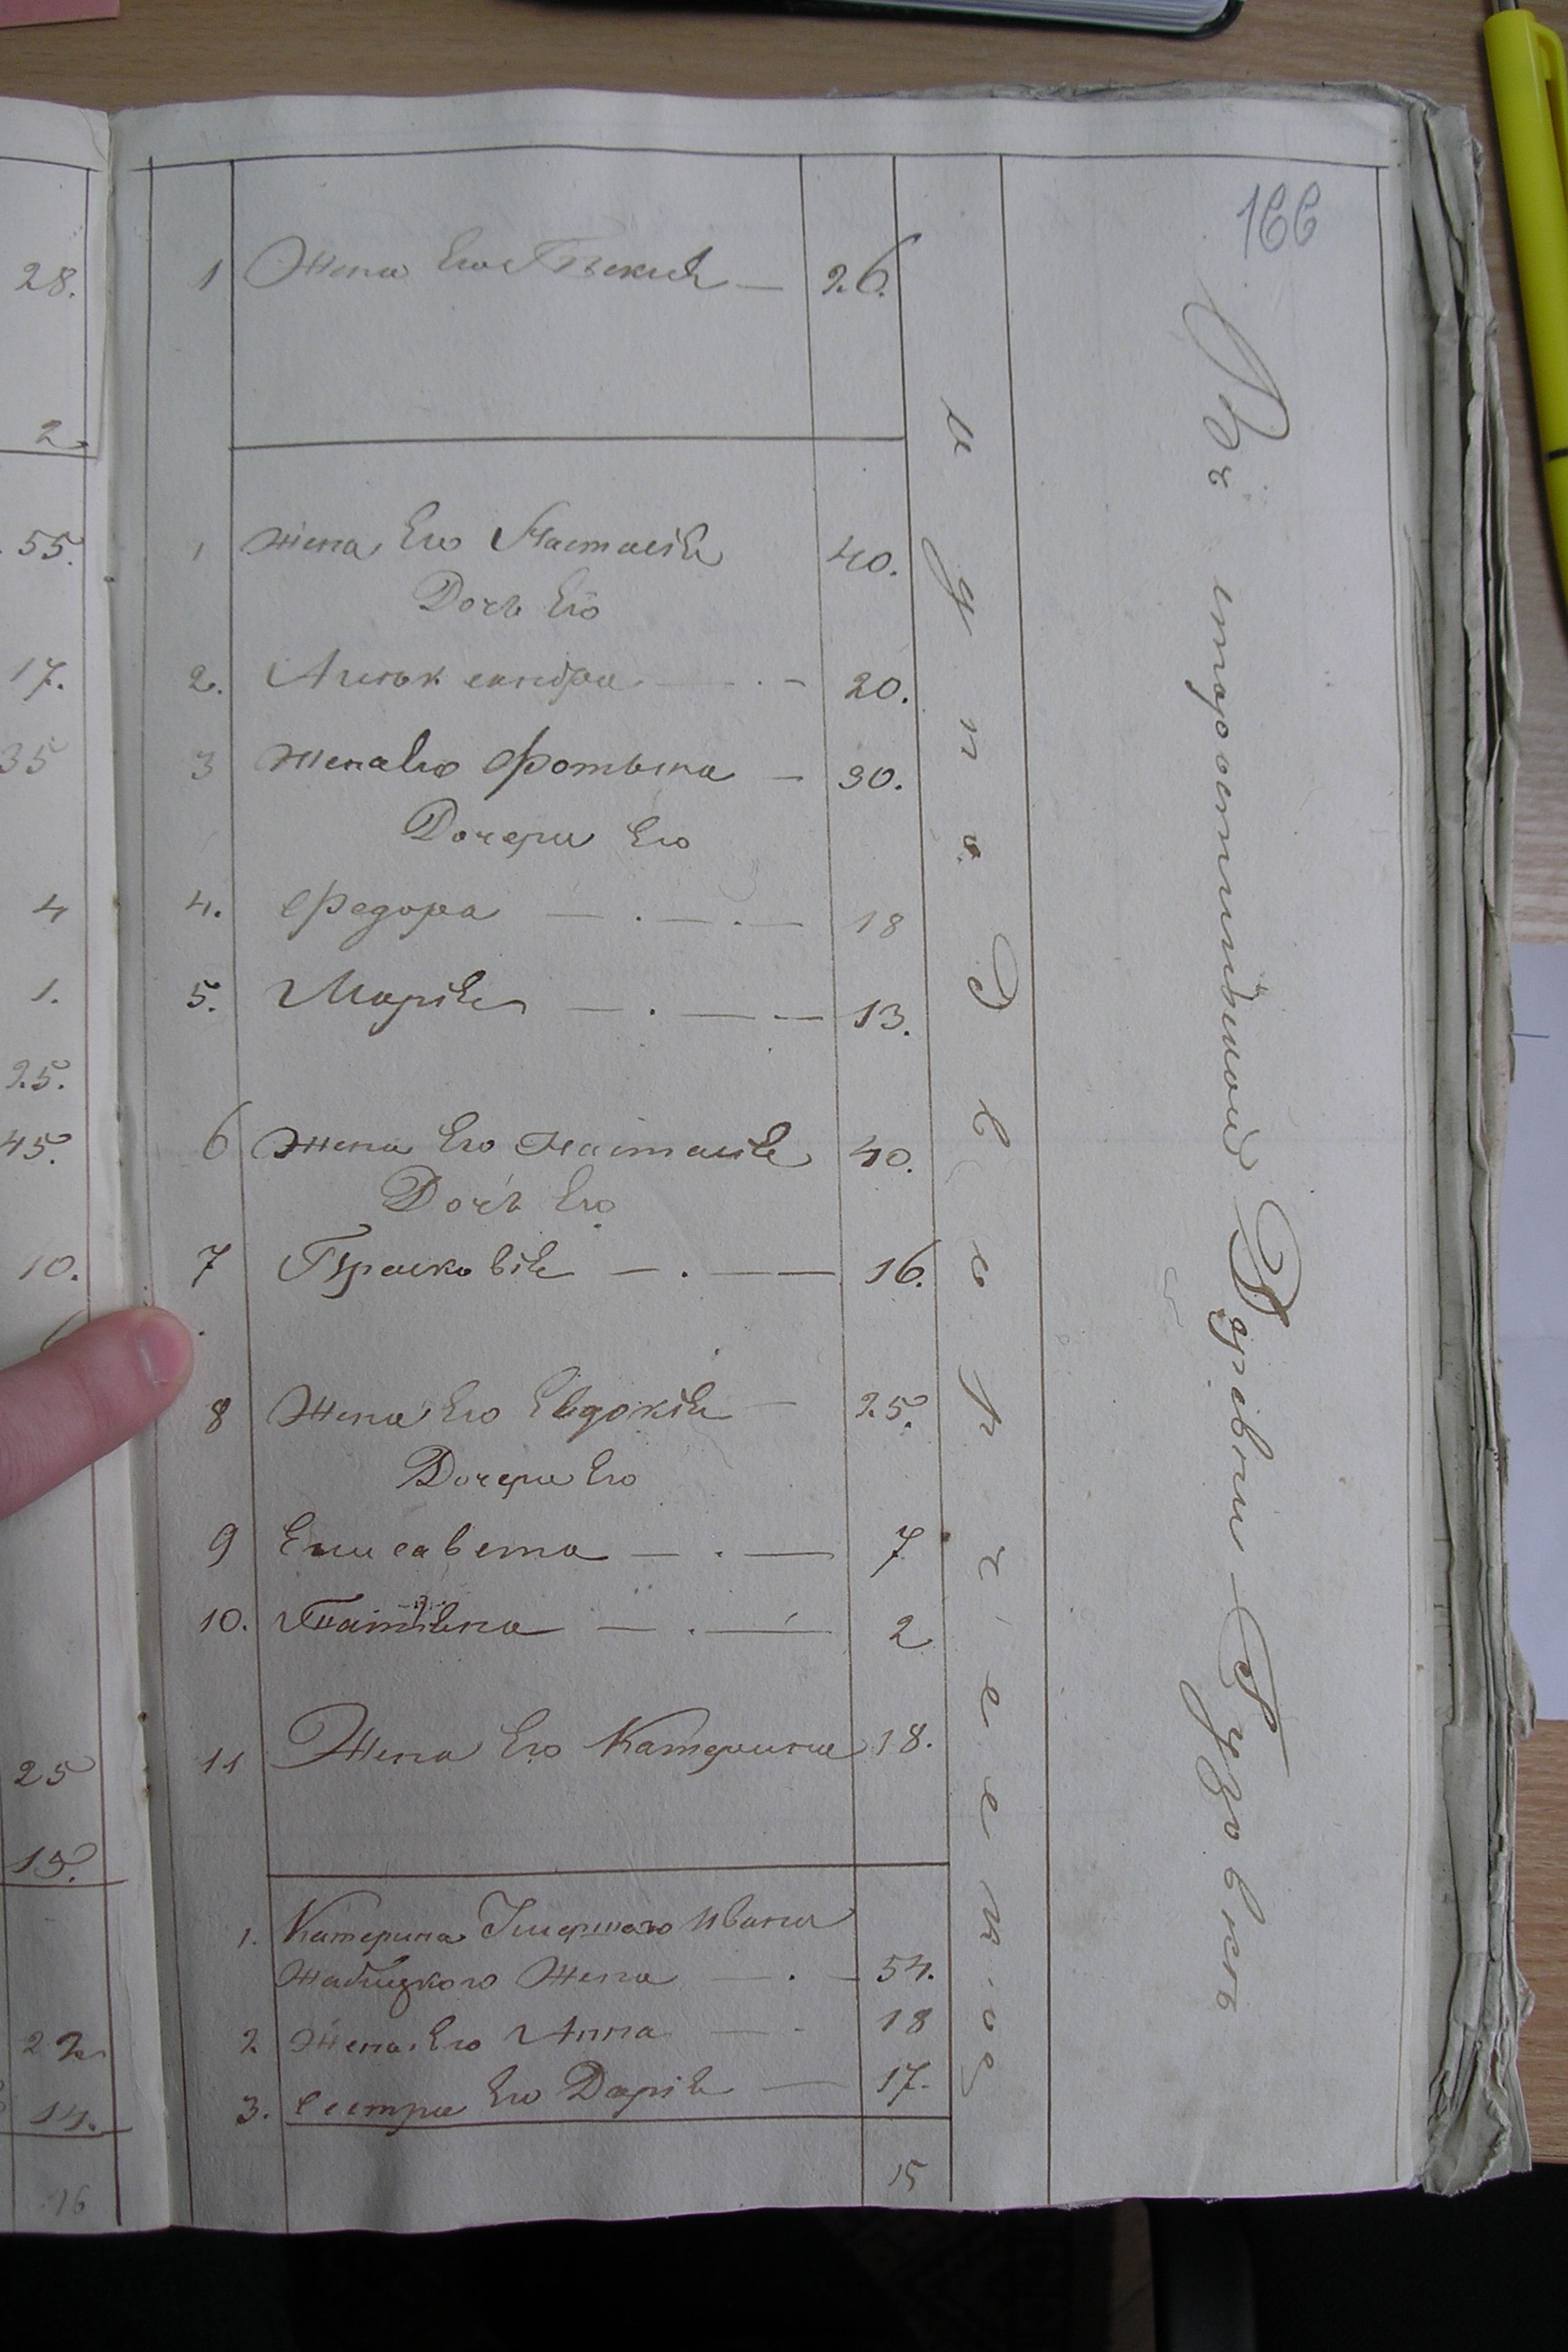 166
28.
2
55.
17.
35
4
1.
25.
45.
10.
25
15.
22
14.
16
1 Жена Его Тѣкля — 26.
1 Жена Его Настасія 40.
Дочь Его
2. Алѣксандра — . — 20.
3 Жена Его Фотьяна — 30.
Дочери Его
4. Федора — . — . — 18
5. Марія — . — — 13.
6 Жена Его Настасія 40.
Дочь Его
7 Прасковія — . — — 16.
8 Жена Его Евдокія — 25.
Дочери Его
9 Елисавета — . — 7
10. Татіяна — . — 2
11 Жена Его Катерина 18.
1. Катерина Умершаго Ивана
Жабицкого Жена — . — 54.
2. Жена Его Анна — . 18
3. Сестра Его Дарія — 17.
15
и у п а Д в о р ч е е т
Въ Деревни